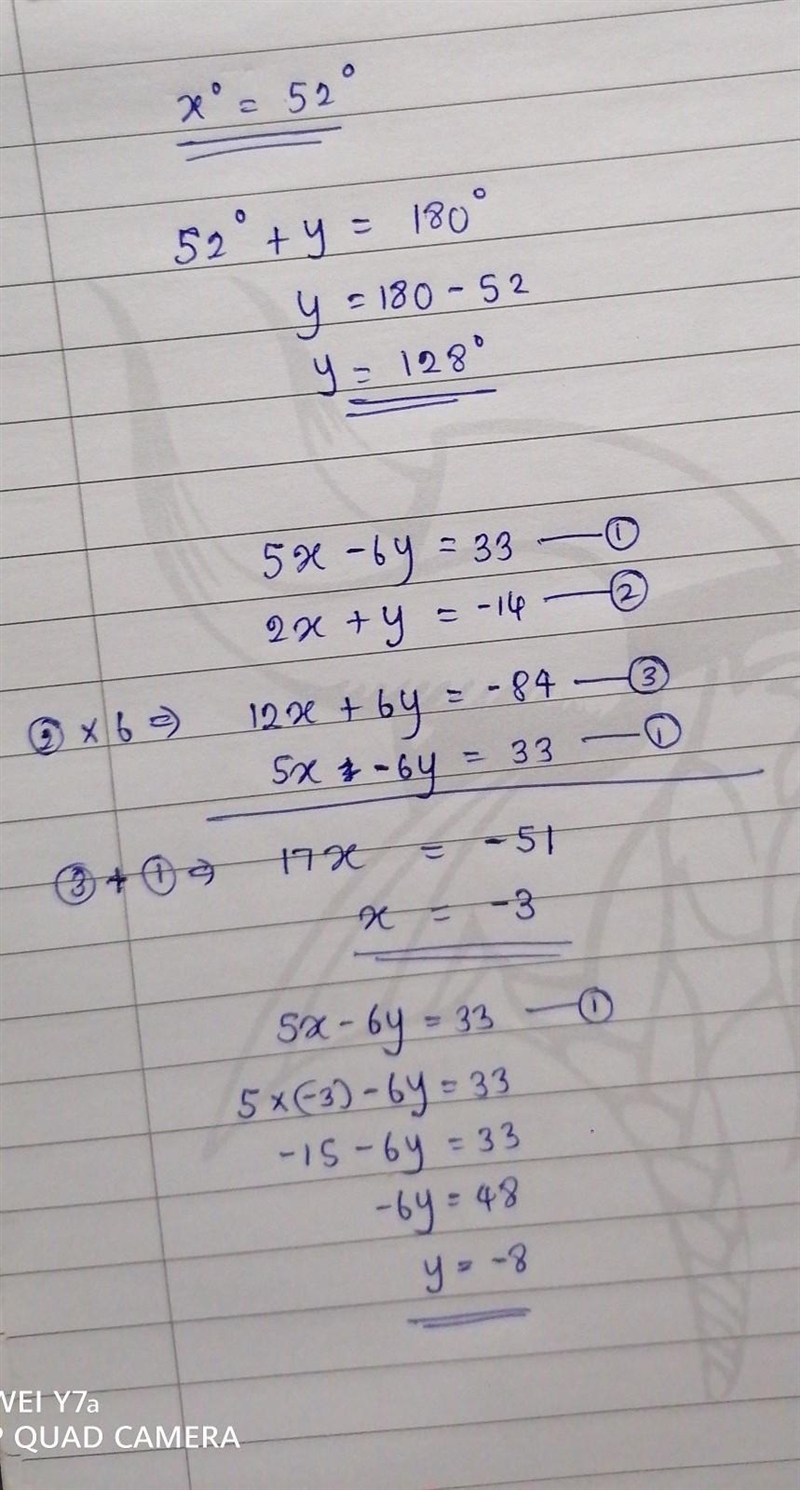 x° = 52°
52° + y = 180°
y = 180 - 52
y = 128°
5x - 6y = 33 — ①
2x + y = -14 — ②
② × 6 ⇒ 12x + 6y = -84 — ③
5x - 6y = 33 — ①
③ + ① ⇒ 17x = -51
x = -3
5x - 6y = 33 — ①
5 × (-3) - 6y = 33
-15 - 6y = 33
-6y = 48
y = -8
WEI Y7a
P QUAD CAMERA